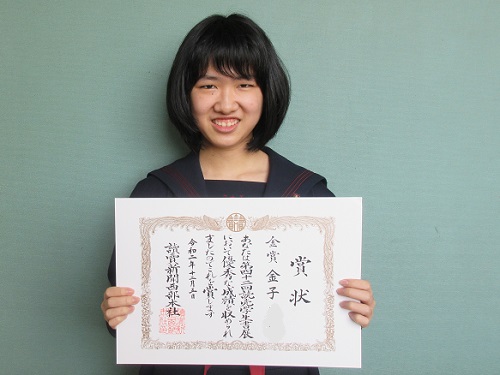 賞状
金賞 金子
あなたは第四十二回読売学生書展
において優秀な成績を収められ
ましたのでこれを賞します
令和二年十二月五日
讀賣新聞西部本社